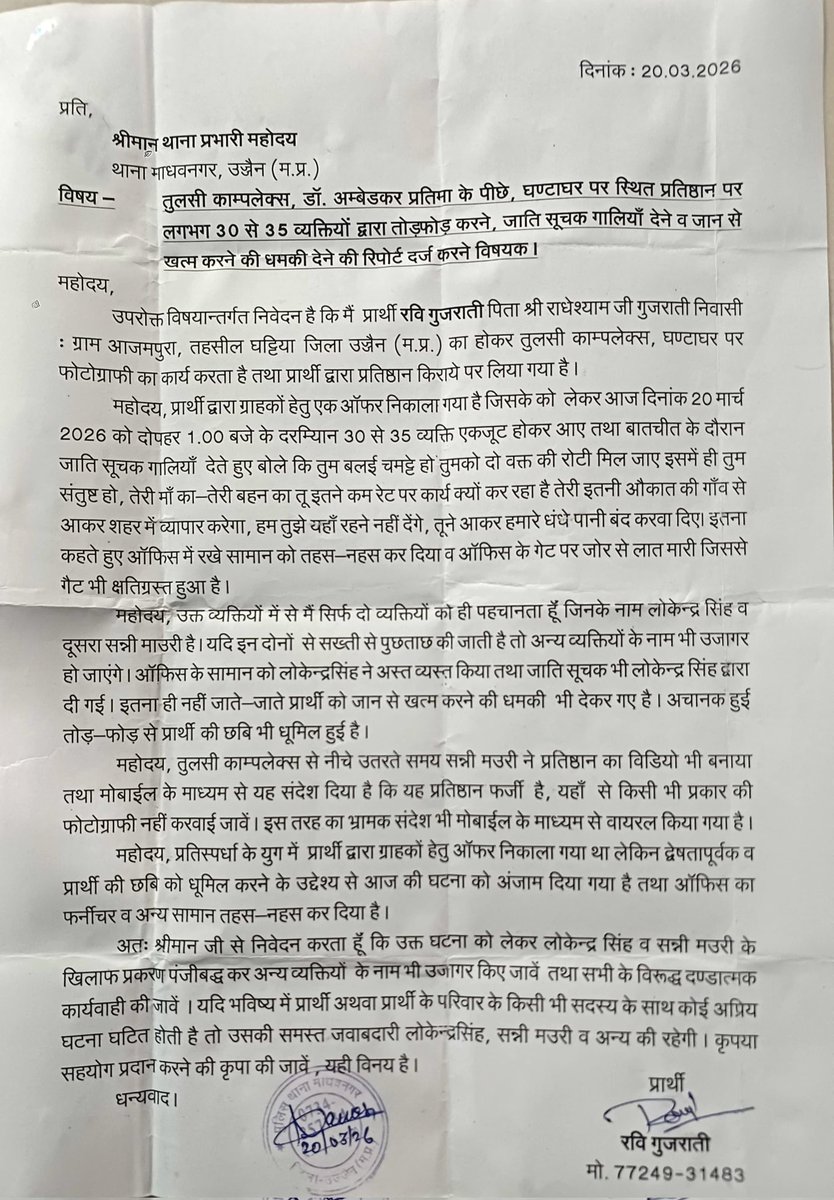 दिनांक : 20.03.2026
प्रति,
श्रीमान् थाना प्रभारी महोदय
थाना माधवनगर, उज्जैन (म.प्र.)
विषय – तुलसी काम्पलेक्स, डॉ. अम्बेडकर प्रतिमा के पीछे, घण्टाघर पर स्थित प्रतिष्ठान पर
लगभग 30 से 35 व्यक्तियों द्वारा तोड़फोड़ करने, जाति सूचक गालियाँ देने व जान से
खत्म करने की धमकी देने की रिपोर्ट दर्ज करने विषयक।
महोदय,
उपरोक्त विषयान्तर्गत निवेदन है कि मैं प्रार्थी रवि गुजराती पिता श्री राधेश्याम जी गुजराती निवासी
: ग्राम आजमपुरा, तहसील घट्टिया जिला उज्जैन (म.प्र.) का होकर तुलसी काम्पलेक्स, घण्टाघर पर
फोटोग्राफी का कार्य करता है तथा प्रार्थी द्वारा प्रतिष्ठान किराये पर लिया गया है।
महोदय, प्रार्थी द्वारा ग्राहकों हेतु एक ऑफर निकाला गया है जिसके को लेकर आज दिनांक 20 मार्च
2026 को दोपहर 1.00 बजे के दरम्यिान 30 से 35 व्यक्ति एकजूट होकर आए तथा बातचीत के दौरान
जाति सूचक गालियाँ देते हुए बोले कि तुम बलई चमट्टे हो तुमको दो वक्त की रोटी मिल जाए इसमें ही तुम
संतुष्ट हो, तेरी माँ का–तेरी बहन का तू इतने कम रेट पर कार्य क्यों कर रहा है तेरी इतनी औकात की गाँव से
आकर शहर में व्यापार करेगा, हम तुझे यहाँ रहने नहीं देंगे, तूने आकर हमारे धंधे पानी बंद करवा दिए। इतना
कहते हुए ऑफिस में रखे सामान को तहस–नहस कर दिया व ऑफिस के गेट पर जोर से लात मारी जिससे
गैट भी क्षतिग्रस्त हुआ है।
महोदय, उक्त व्यक्तियों में से मैं सिर्फ दो व्यक्तियों को ही पहचानता हूँ जिनके नाम लोकेन्द्र सिंह व
दूसरा सन्नी माउरी है। यदि इन दोनों से सख्ती से पुछताछ की जाती है तो अन्य व्यक्तियों के नाम भी उजागर
हो जाएंगे। ऑफिस के सामान को लोकेन्द्रसिंह ने अस्त व्यस्त किया तथा जाति सूचक भी लोकेन्द्र सिंह द्वारा
दी गई। इतना ही नहीं जाते–जाते प्रार्थी को जान से खत्म करने की धमकी भी देकर गए है। अचानक हुई
तोड़–फोड़ से प्रार्थी की छबि भी धूमिल हुई है।
महोदय, तुलसी काम्पलेक्स से नीचे उतरते समय सन्नी मउरी ने प्रतिष्ठान का विडियो भी बनाया
तथा मोबाईल के माध्यम से यह संदेश दिया है कि यह प्रतिष्ठान फर्जी है, यहाँ से किसी भी प्रकार की
फोटोग्राफी नहीं करवाई जावें। इस तरह का भ्रामक संदेश भी मोबाईल के माध्यम से वायरल किया गया है।
महोदय, प्रतिस्पर्धा के युग में प्रार्थी द्वारा ग्राहकों हेतु ऑफर निकाला गया था लेकिन द्वेषतापूर्वक व
प्रार्थी की छबि को धूमिल करने के उद्देश्य से आज की घटना को अंजाम दिया गया है तथा ऑफिस का
फर्नीचर व अन्य सामान तहस–नहस कर दिया है।
अतः श्रीमान जी से निवेदन करता हूँ कि उक्त घटना को लेकर लोकेन्द्र सिंह व सन्नी मउरी के
खिलाफ प्रकरण पंजीबद्ध कर अन्य व्यक्तियों के नाम भी उजागर किए जावें तथा सभी के विरूद्ध दण्डात्मक
कार्यवाही की जावें । यदि भविष्य में प्रार्थी अथवा प्रार्थी के परिवार के किसी भी सदस्य के साथ कोई अप्रिय
घटना घटित होती है तो उसकी समस्त जवाबदारी लोकेन्द्रसिंह, सन्नी मउरी व अन्य की रहेगी । कृपया
सहयोग प्रदान करने की कृपा की जावें ,यही विनय है।
धन्यवाद।
प्रार्थी
रवि गुजराती
मो. 77249-31483
पुलिस थाना माधवनगर
20/03/26